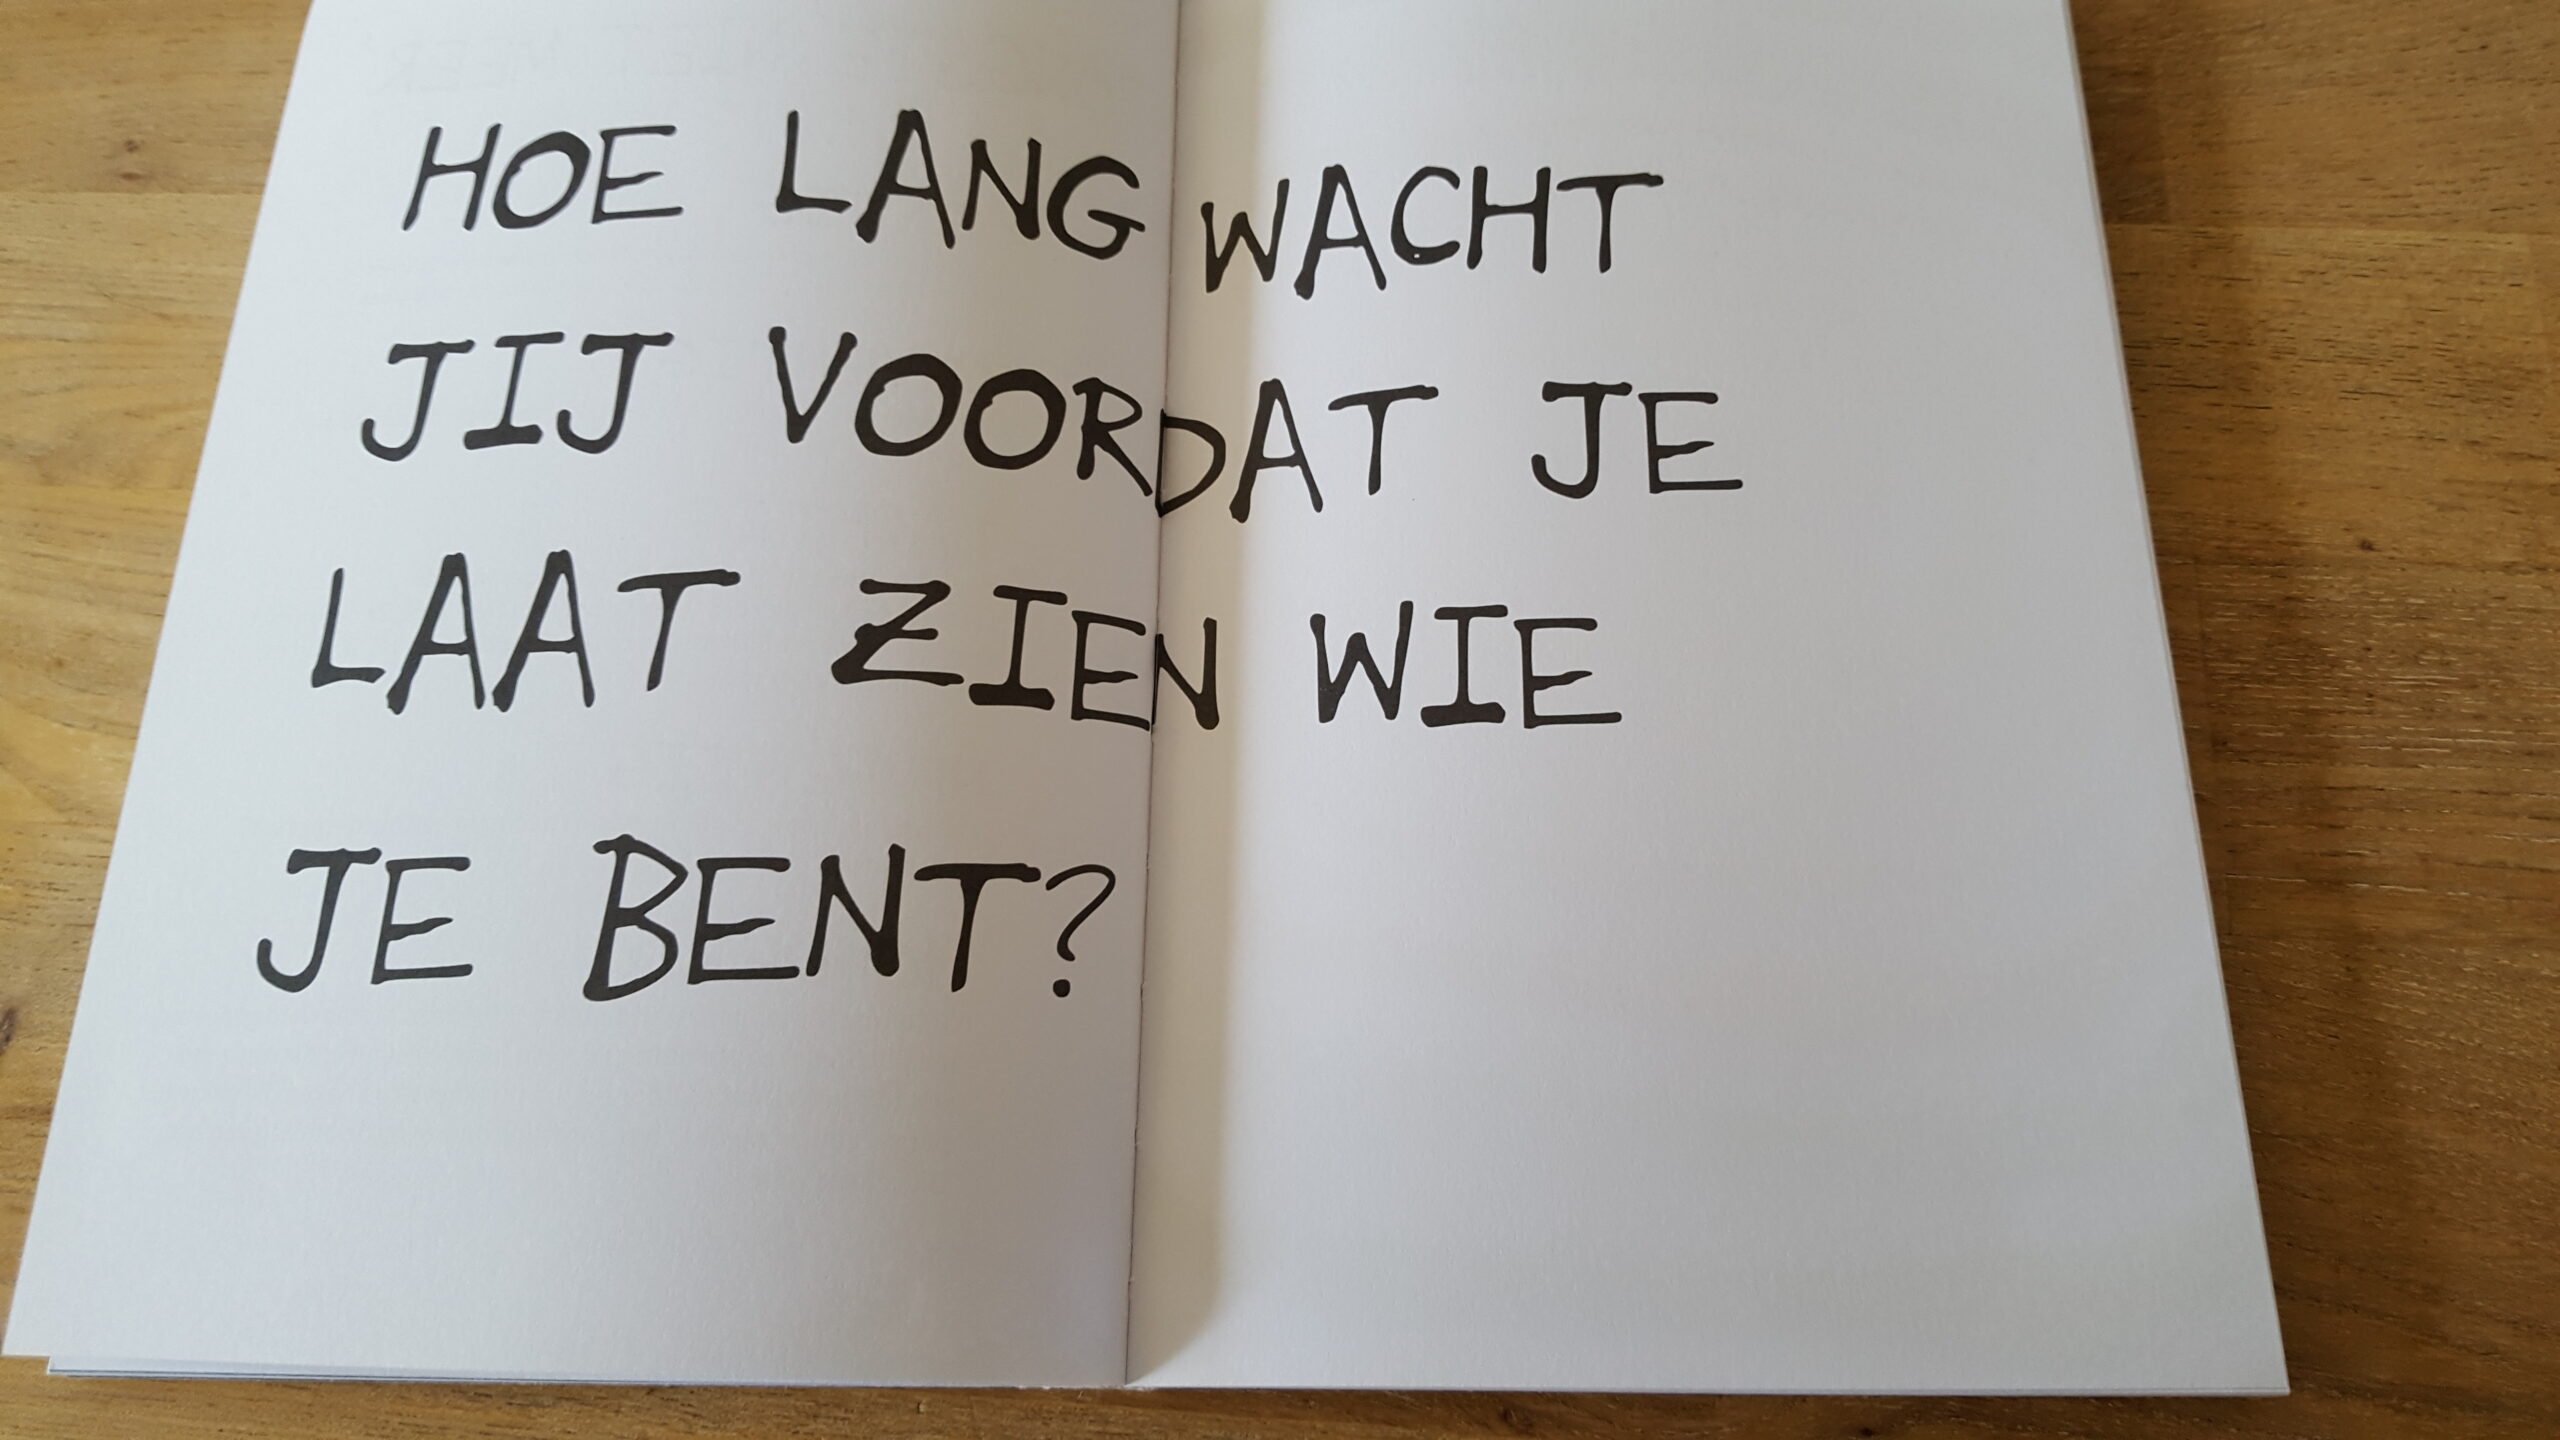 HOE LANG WACHT
JIJ VOORDAT JE
LAAT ZIEN WIE
JE BENT?